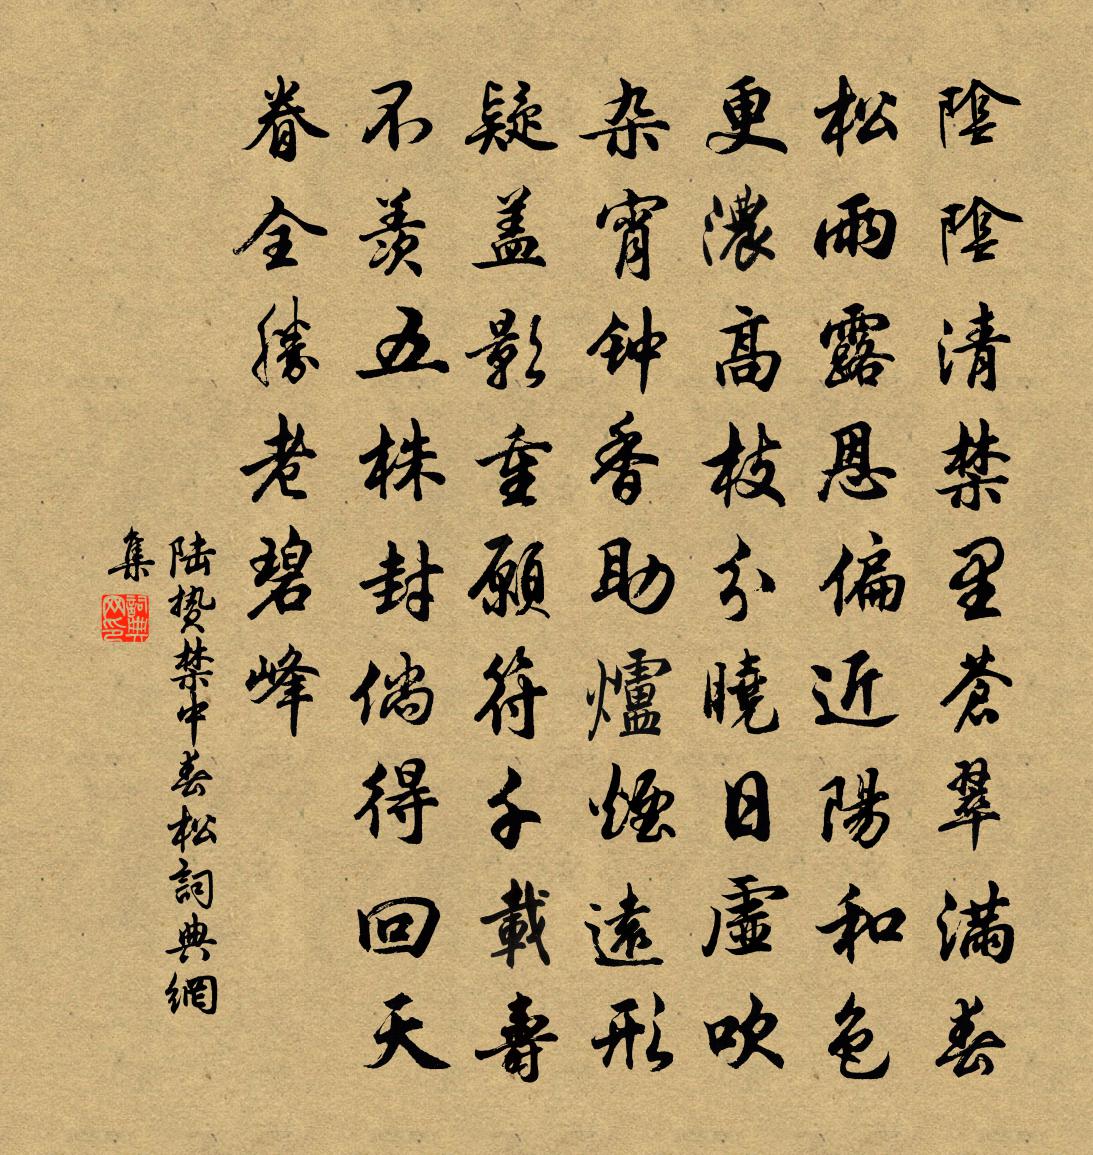 陰陰清禁里蒼翠滿春
松雨露恩偏近陽和色
更濃高枝分曉日虛吹
杂宵钟香助爐煙遠形
疑盖影重願符千載壽
不羨五株封倘得回天
眷全勝老碧峰
陆贽禁中春松詞典網
集
詞典网印